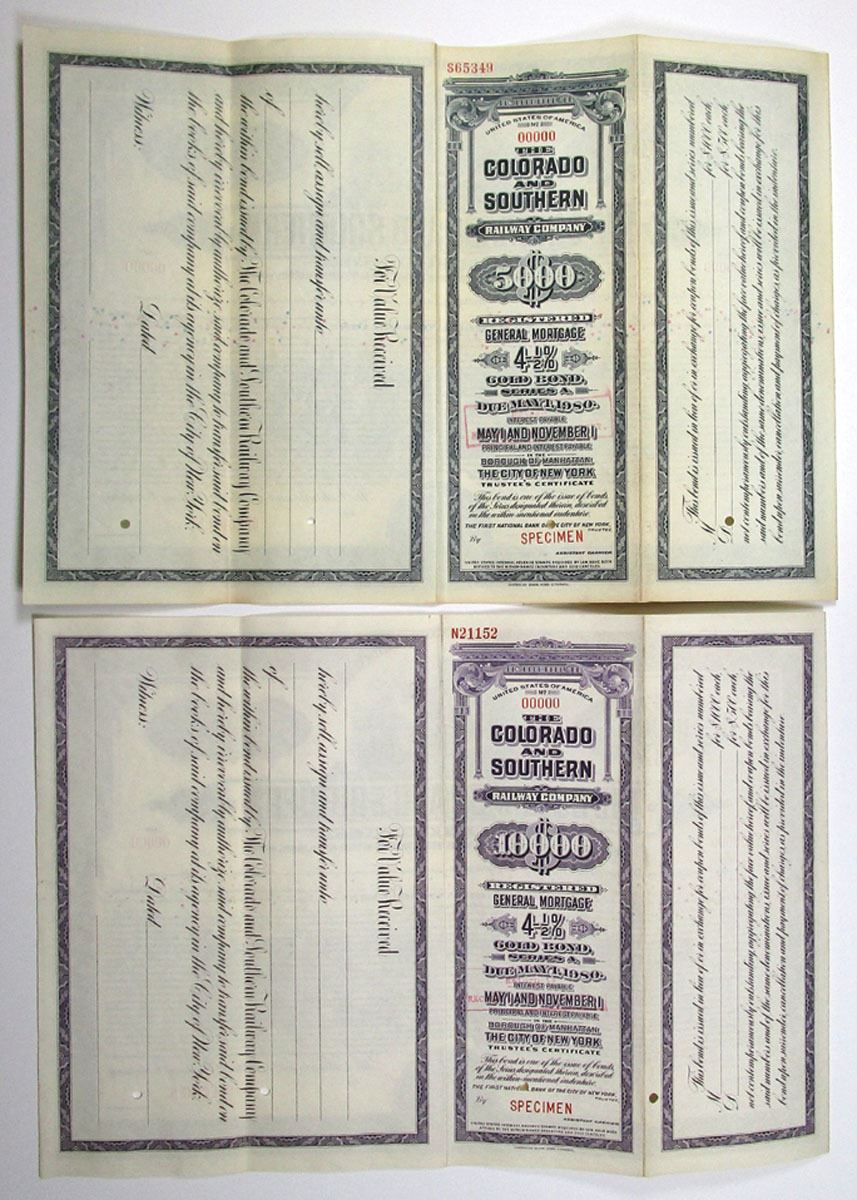 For Value Received
hereby sell, assign and transfer unto
of
the within bond issued by The Colorado and Southern Railway Company
and hereby irrevocably authorize said company to transfer said bond on
the books of said company at its agency in the City of New York.
Dated
Witness:
S65349
UNITED STATES OF AMERICA
No
00000
THE
COLORADO
AND
SOUTHERN
RAILWAY COMPANY
$5000
REGISTERED
GENERAL MORTGAGE
4½%
GOLD BOND,
SERIES A.
DUE MAY 1, 1980.
INTEREST PAYABLE
MAY 1 AND NOVEMBER 1
PRINCIPAL AND INTEREST PAYABLE
IN THE
BOROUGH OF MANHATTAN,
THE CITY OF NEW YORK
TRUSTEE'S CERTIFICATE
This bond is one of the issue of bonds,
of the Series designated therein, described
in the within-mentioned indenture.
THE FIRST NATIONAL BANK OF THE CITY OF NEW YORK,
TRUSTEE
By
SPECIMEN
ASSISTANT CASHIER
This bond is issued in lieu of or in exchange for coupon bonds of this issue and series numbered
M for $1000 each,
D for $500 each,
not contemporaneously outstanding, aggregating the face value hereof and coupon bonds bearing the
said numbers and of the same denominations, issue and series will be issued in exchange for this
bond upon surrender, cancellation and payment of charges, as provided in the indenture.
For Value Received
hereby sell, assign and transfer unto
of
the within bond issued by The Colorado and Southern Railway Company
and hereby irrevocably authorize said company to transfer said bond on
the books of said company at its agency in the City of New York
Dated
Witness:
N21152
UNITED STATES OF AMERICA
No
00000
THE
COLORADO
AND
SOUTHERN
RAILWAY COMPANY
$10000
REGISTERED
GENERAL MORTGAGE
4½%
GOLD BOND,
SERIES A.
DUE MAY 1, 1980.
INTEREST PAYABLE
MAY 1 AND NOVEMBER 1
PRINCIPAL AND INTEREST PAYABLE
IN THE
BOROUGH OF MANHATTAN,
THE CITY OF NEW YORK
TRUSTEE'S CERTIFICATE
This bond is one of the issue of bonds,
of the Series designated therein, described
in the within-mentioned indenture.
THE FIRST NATIONAL BANK OF THE CITY OF NEW YORK,
TRUSTEE
By
SPECIMEN
ASSISTANT CASHIER
This bond is issued in lieu of or in exchange for coupon bonds of this issue and series numbered
M for $1000 each,
D for $500 each,
not contemporaneously outstanding, aggregating the face value hereof and coupon bonds bearing the
said numbers and of the same denominations, issue and series will be issued in exchange for this
bond upon surrender, cancellation and payment of charges, as provided in the indenture